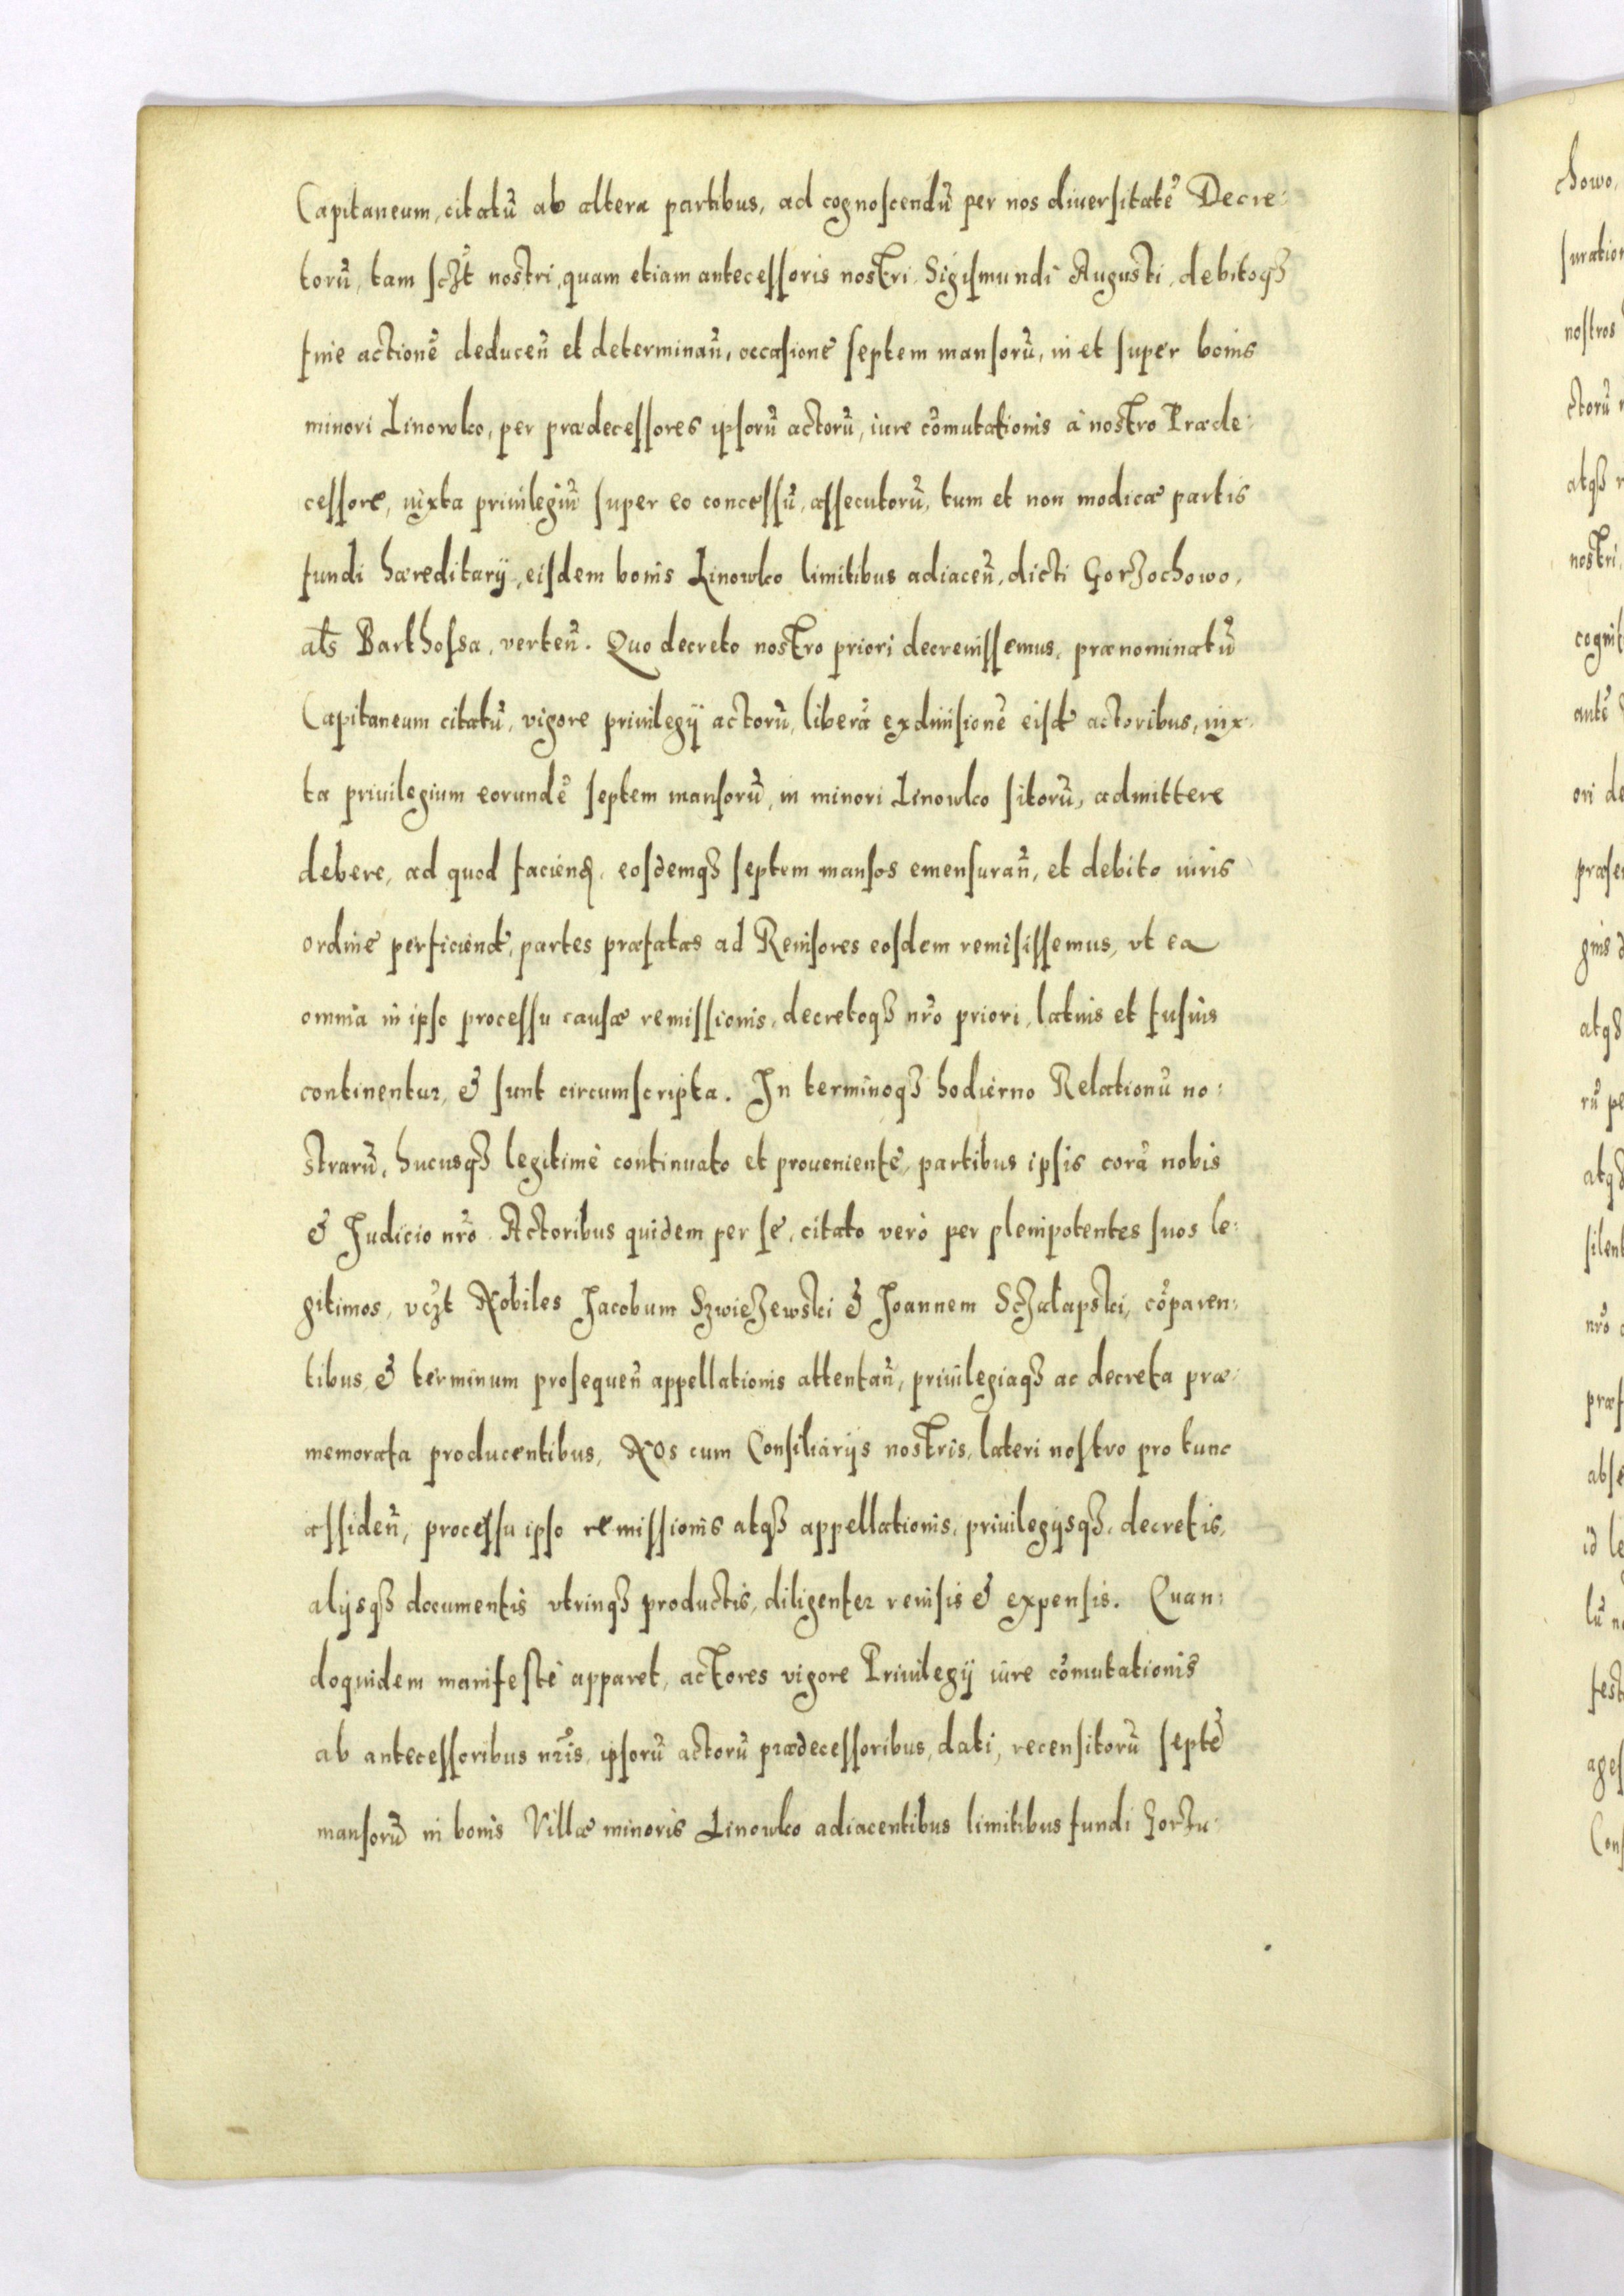 Capitaneum, citatũ ab altera partibus, ad cognoscendũ per nos diuersitatẽ Decre:
torũ, tam sczt nostri, quam etiam antecessoris nostri Sigismundi Augusti, debitoqȝ
fine actionẽ deduceñ et determinañ, occasione septem mansorũ, in et super bonis
minori Linowko, per prædecessores ipsorũ actorũ, iure cõmutationis à nostro Præde:
cessore, iuxta priuilegiũ super eo concessũ, assecutorũ, tum et non modicæ partis
fundi hæreditarÿ, eisdem bonis Linowko limitibus adiaceñ, dicti Gorzochowo,
als Barthossa, verteñ. Quo decreto nostro priori decreuissemus, prænominatũ
Capitaneum citatũ, vigore priuilegÿ actorũ, liberã exdiuisionẽ eisd actoribus, iux:
ta priuilegium eorundẽ septem mansorũ, in minori Linowko sitorũ, admittere
debere, ad quod faciend, eosdemqȝ septem mansos emensurañ, et debito iuris
ordine perficiend, partes præfatas ad Reuisores eosdem remisissemus, vt ea
omnia in ipso processu causæ remissionis, decretoqȝ nr̃o priori, latius et fusius
continentur, & sunt circumscripta. In terminoqȝ hodierno Relationũ no:
strarũ, hucusqȝ legitimè continuato et proueniente, partibus ipsis corã nobis
& Judicio nr̃o Actoribus quidem per se, citato verò per plenipotentes suos le:
gitimos, vczt Nobiles Jacobum Szwieżewski & Joannem Sczałapski, cõparen:
tibus, & terminum prosequeñ appellationis attentañ, priuilegiaqȝ ac decreta præ:
memorata producentibus, Nos cum Consiliarÿs nostris, lateri nostro pro tunc
assideñ, processu ipso remissionis atqȝ appellationis, priuilegÿsqȝ, decretis,
alÿsqȝ documentis vtrinqȝ productis, diligenter reuisis & expensis. Quan:
doquidem manifestè apparet, actores vigore Priuilegÿ iure cõmutationis
ab antecessoribus nr̃is, ipsorũ actorũ prædecessoribus, dati, recensitorũ septẽ
mansorũ in bonis Villæ minoris Linowko adiacentibus limitibus fundi Gorzu:
chowo,
nostros
ctorũ
atqȝ
nostri,
ori de
atqȝ
atqȝ
nr̃o